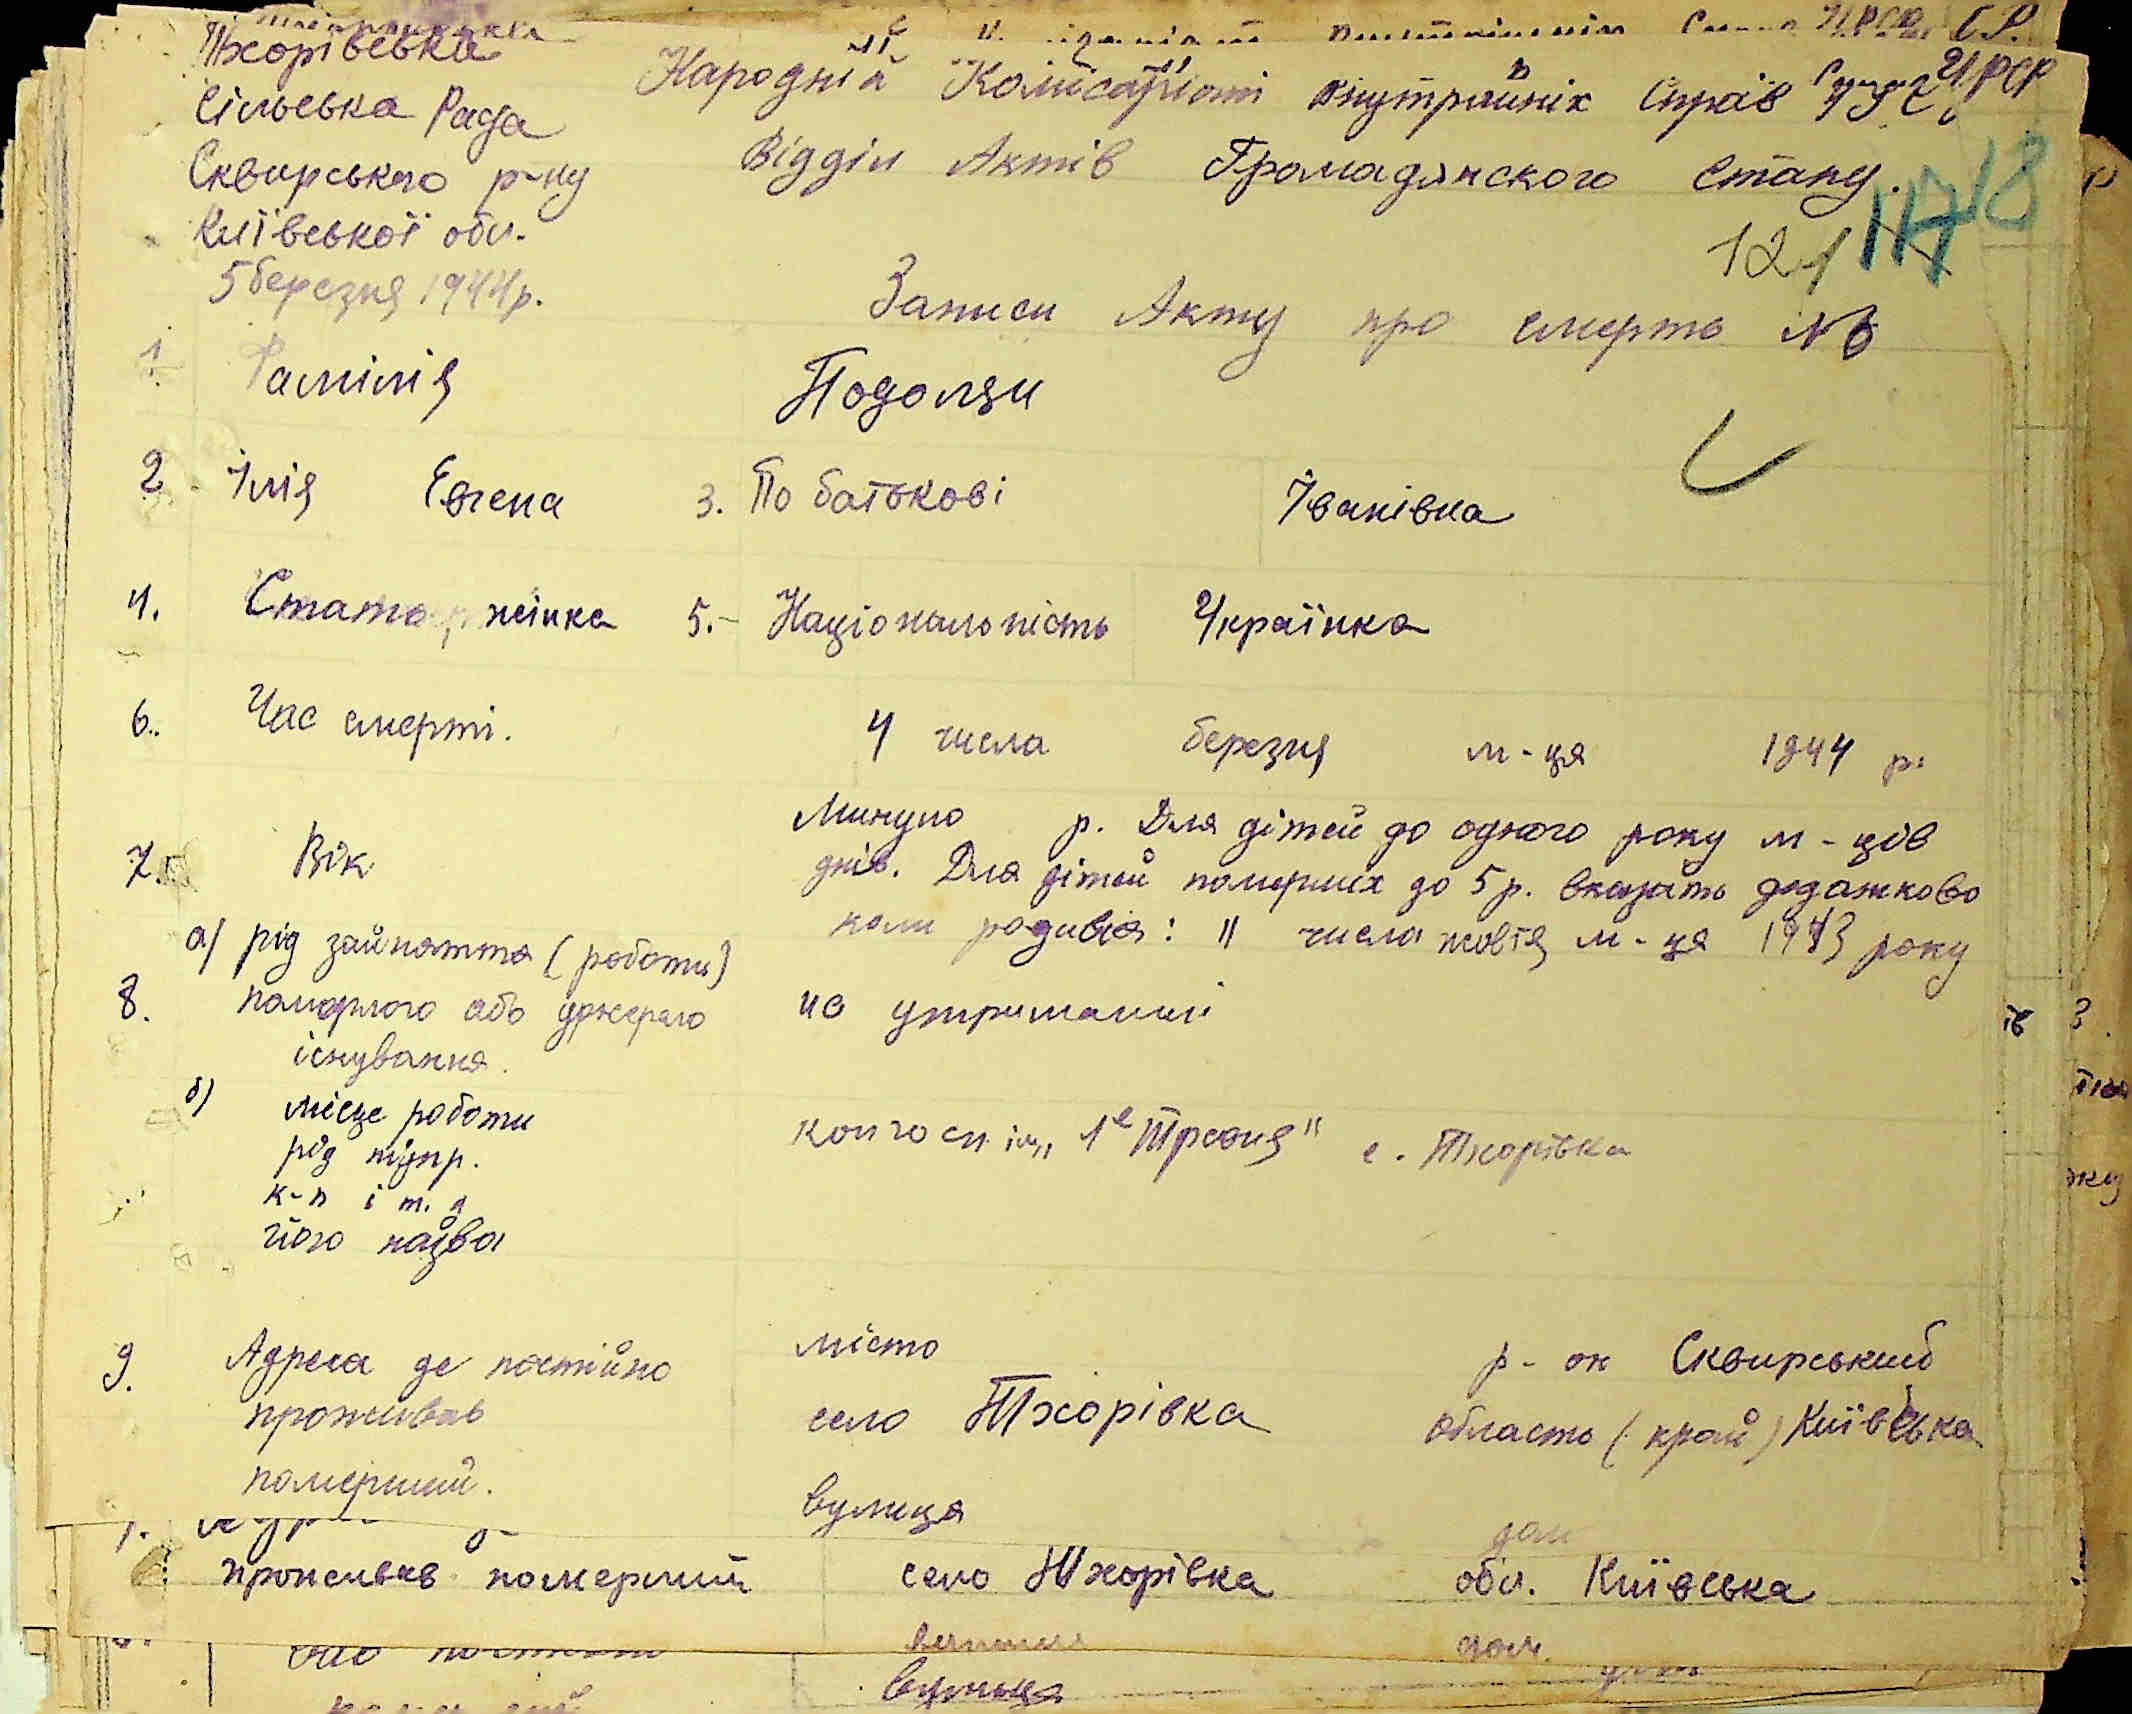 Тхорівська
Сільська Рада
Сквирського р-ну
Київської обл.
5 березня 1944 р.
Народній Комісаріат Внутрішніх Справ УРСР
Відділ Актів Громадянского Стану.
118
117
121
Записи Акту про смерть № 6
1. Фамілія Подолян
2 Імія Евгена 3. По батькові Іванівна
4. Стать жінка 5.- Національність Українка
6. Час смерті. 4 числа березня м-ця 1944 р.
7. Вік Минуло р. Для дітей до одного року м-ців
днів. Для дітей померших до 5 р. вказать додатково
коли родивсь: 11 числа жовтя м-ця 1943 року
а) рід зайняття (роботи)
8. помэрлого або джерело на утриманні
існування.
б) місце роботи
рід підпр. колгосп ім,, 1е Травня" с. Тхорівка
к-п і т. д
його назва
9. Адреса де постійно
проживав
померший.
місто р-он Сквирський
село Тхорівка область (край) Київська
вулиця дом
проживав померший село Тхорівка обл. Київська
дом.
вулиця